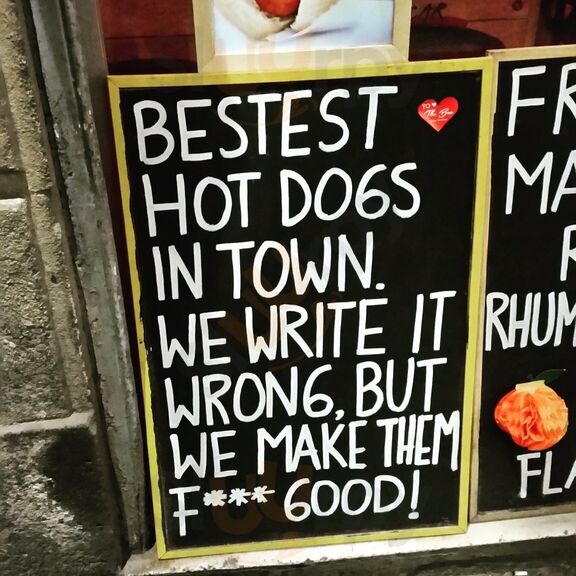 BESTEST
HOT DOGS
IN TOWN.
WE WRITE IT
WRONG, BUT
WE MAKE THEM
F*** GOOD!
FR
MA
R
RHUM
FLA